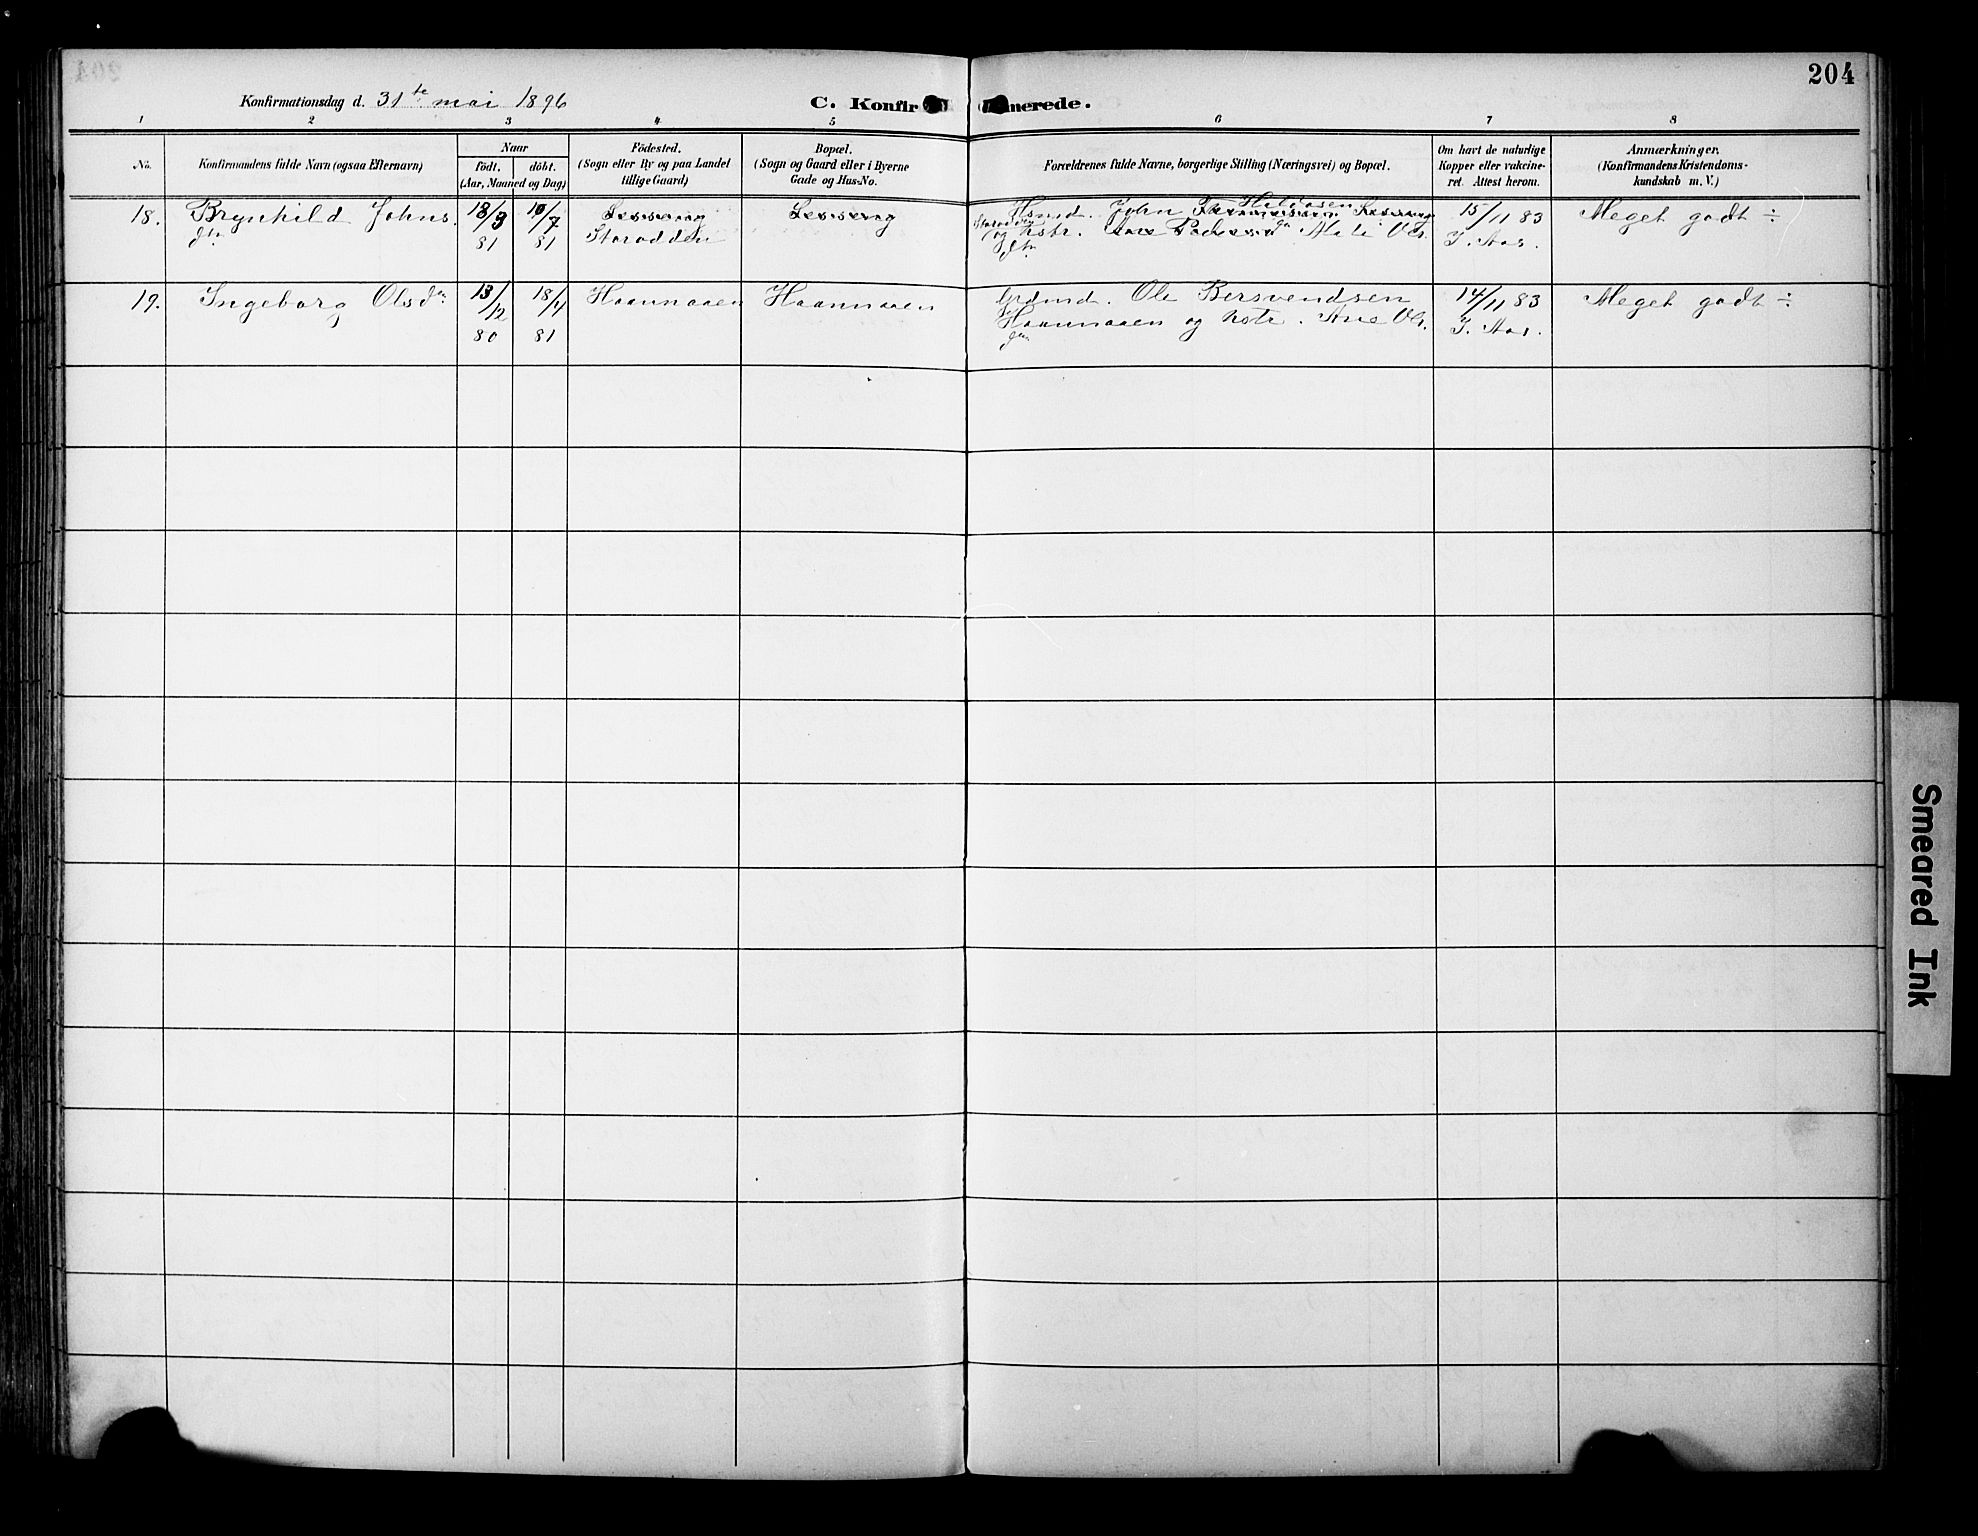 204
Konfirmationsdag d. 31te mai 1896
C. Konfirmerede.
1 2 3 4 5 6 7 8
No.
Konfirmandens fulde Navn (ogsaa Efternavn)
Naar
födt. döbt.
(Aar, Maaned og Dag)
Födested.
(Sogn eller By og paa Landet
tillige Gaard)
Bopæl.
(Sogn og Gaard eller i Byerne
Gade og Hus-No.
Forældrenes fulde Navne, borgerlige Stilling (Næringsvei) og Bopæl.
Om havt de naturlige
Kopper eller vakcine-
ret. Attest herom.
Anmærkninger.
(Konfirmandens Kristendoms-
kundskab m. V.)
18.
Brynhild Johns.
dtr
18/3
81
10/7
81
Storodden
Hsmd. John
og Kstr. Mali Ols.
dtr
15/11 83
J. Aas.
Meget godt ÷
19.
Ingeborg Olsdtr
13/12
80
18/4
81
Haannaaen
Haannaaen
Grdmd. Ole Bersvendsen
Haannaaen og Kstr. Ane Ols.
dtr
14/11 83
J. Aas.
Meget godt ÷
Smeared Ink